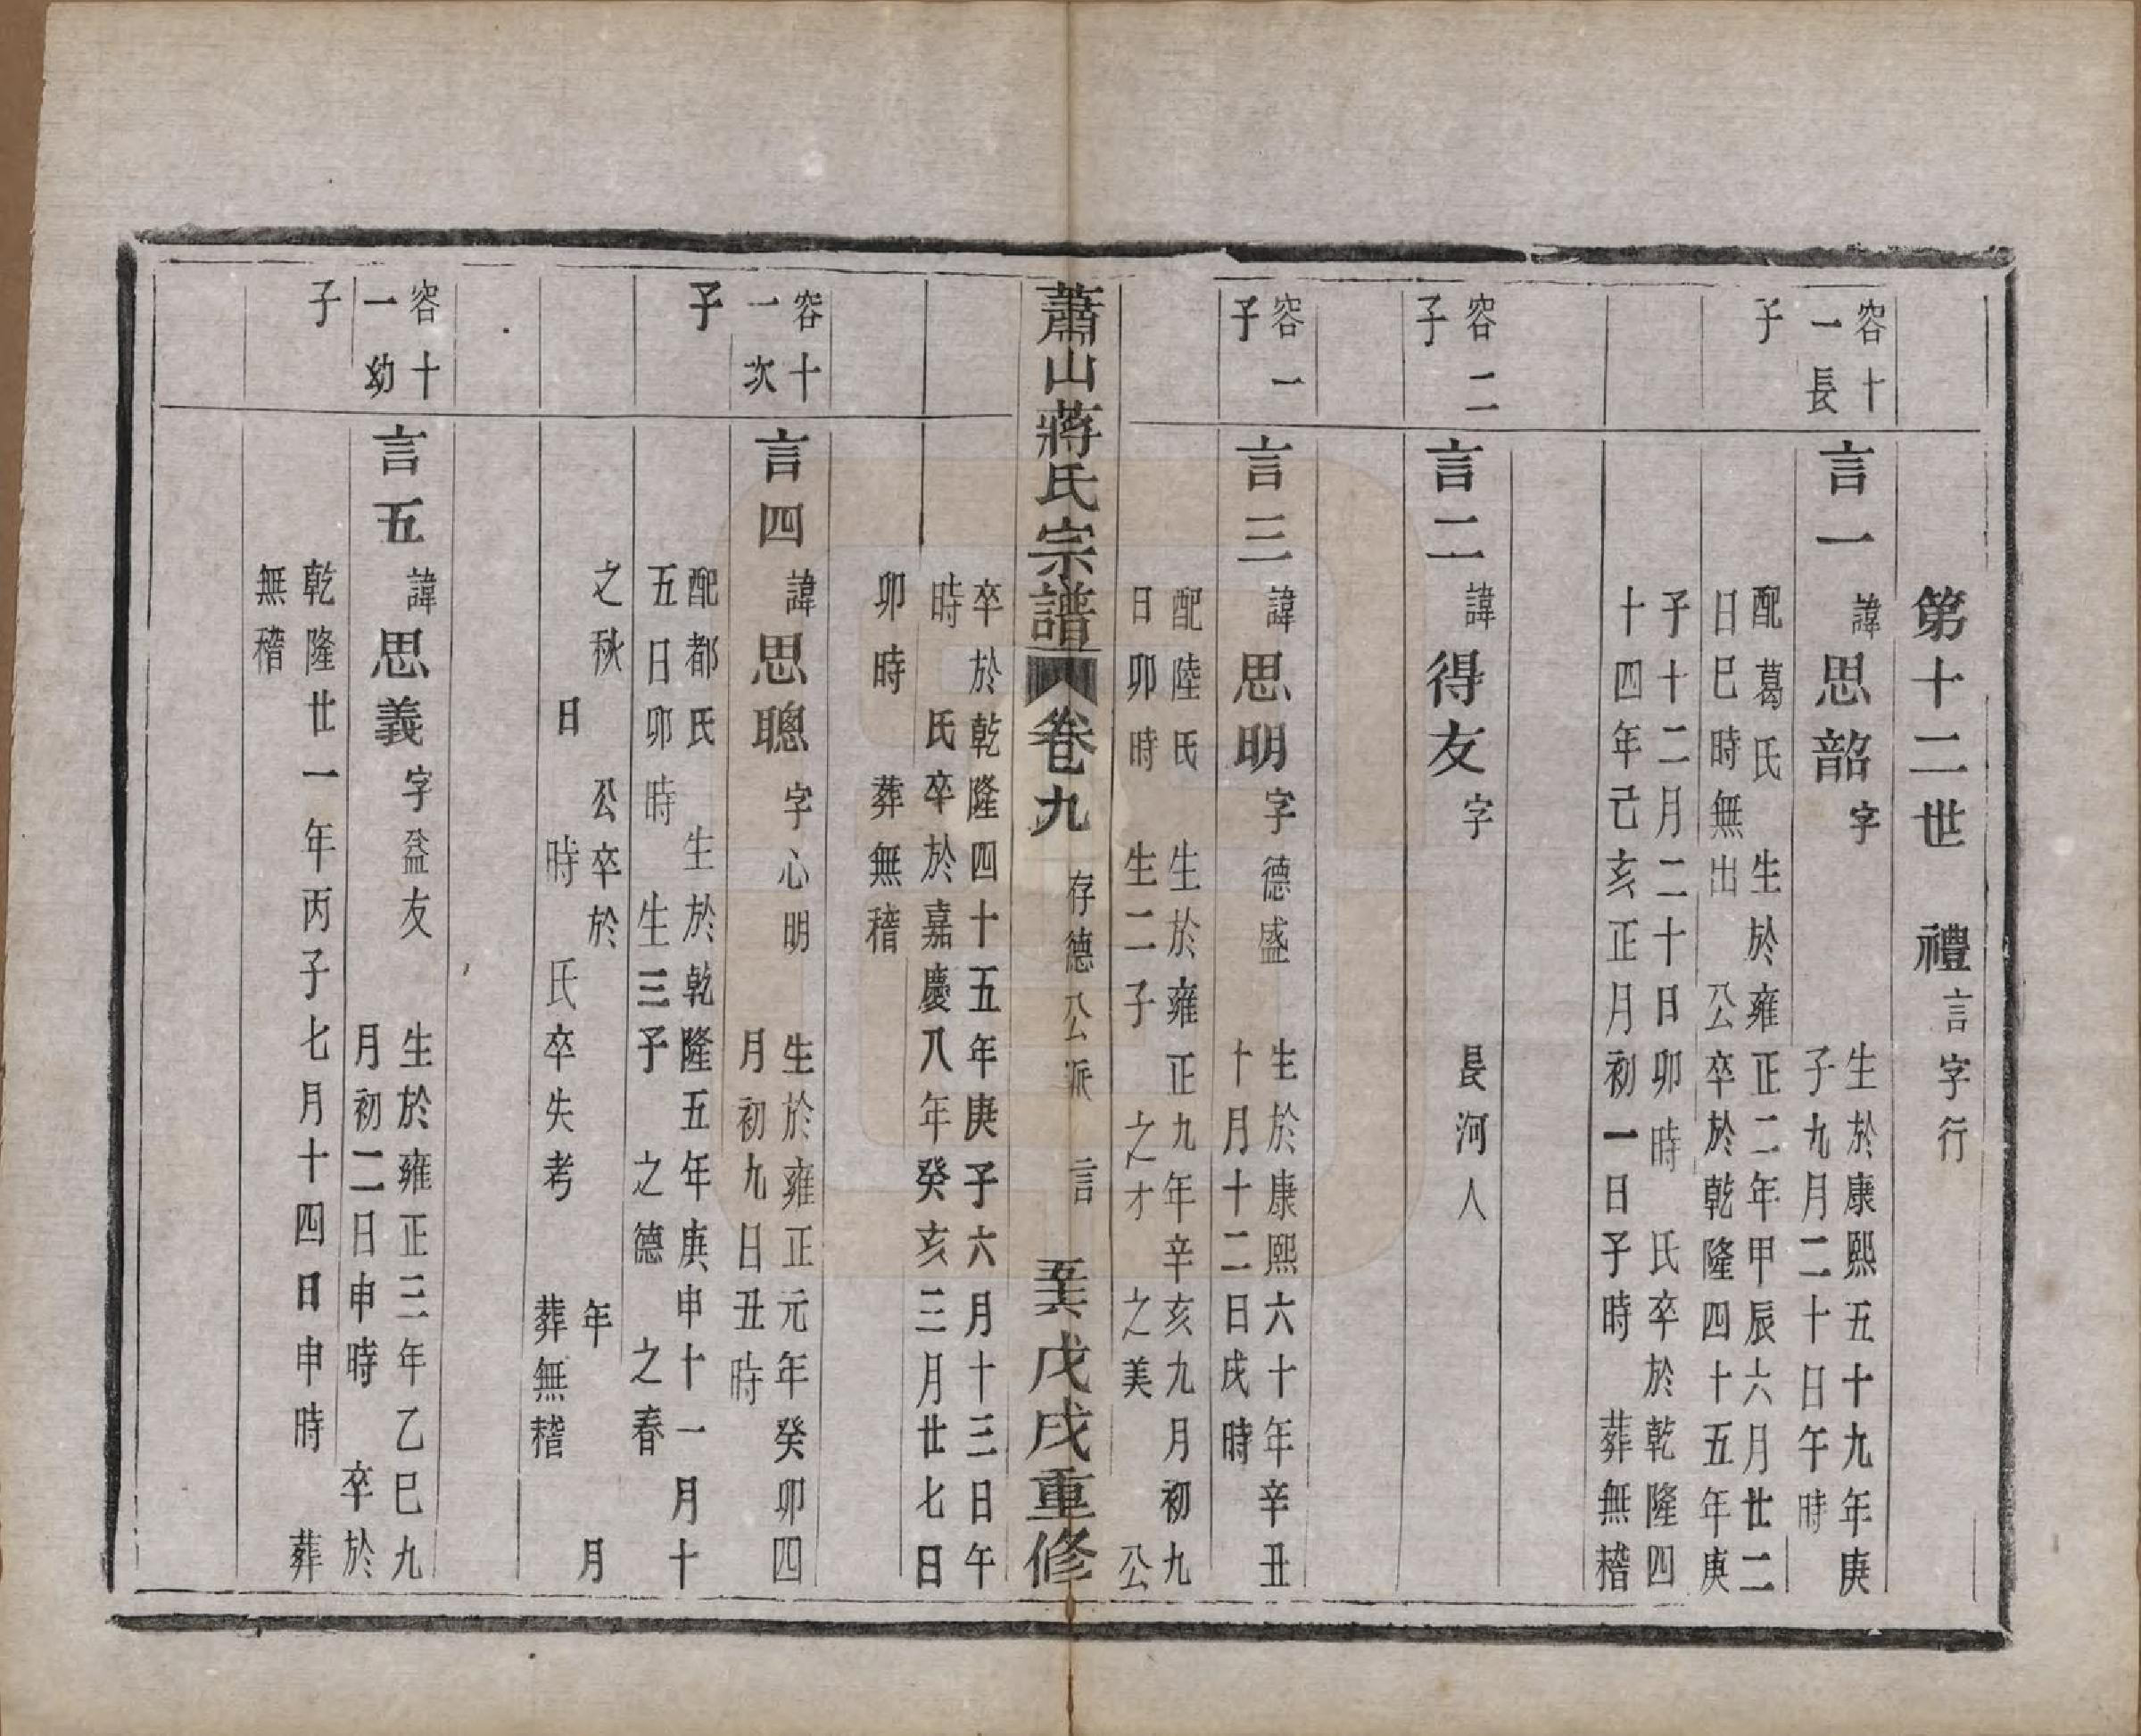 第十二世 禮言字行
容十一長子
言一 諱思韶字
生於康熙五十九年庚
子九月二十日午時
配葛氏 生於雍正二年甲辰六月廿二
日巳時無出 公卒於乾隆四十五年庚
子十二月二十日卯時 氏卒於乾隆四
十四年己亥正月初一日子時 葬無稽
容二子
言二 諱得友字 長河人
容一子
言三 諱思明字德盛
生於康熙六十年辛丑
十月十二日戌時
配陸氏 生於雍正九年辛亥九月初九
日卯時 生二子 之才 之美 公
蕭山蔣氏宗譜 卷九 存德公派 言 戊戌重修
卒於乾隆四十五年庚子六月十三日午
時 氏卒於嘉慶八年癸亥三月廿七日
卯時 葬無稽
容十一次子
言四 諱思聰字心明
生於雍正元年癸卯四
月初九日丑時
配都氏 生於乾隆五年庚申十一月十
五日卯時 生三子 之德 之春
之秋 公卒於 年 月
日 時 氏卒失考 葬無稽
容十一幼子
言五 諱思義字益友
生於雍正三年乙巳九
月初二日申時 卒於
乾隆廿一年丙子七月十四日申時 葬
無稽